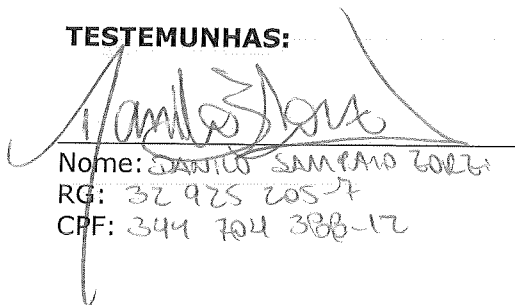 TESTEMUNHAS:
Nome: DANILO SAMPAIO ZORZI
RG: 32 925 205-7
CPF: 344 704 388-12